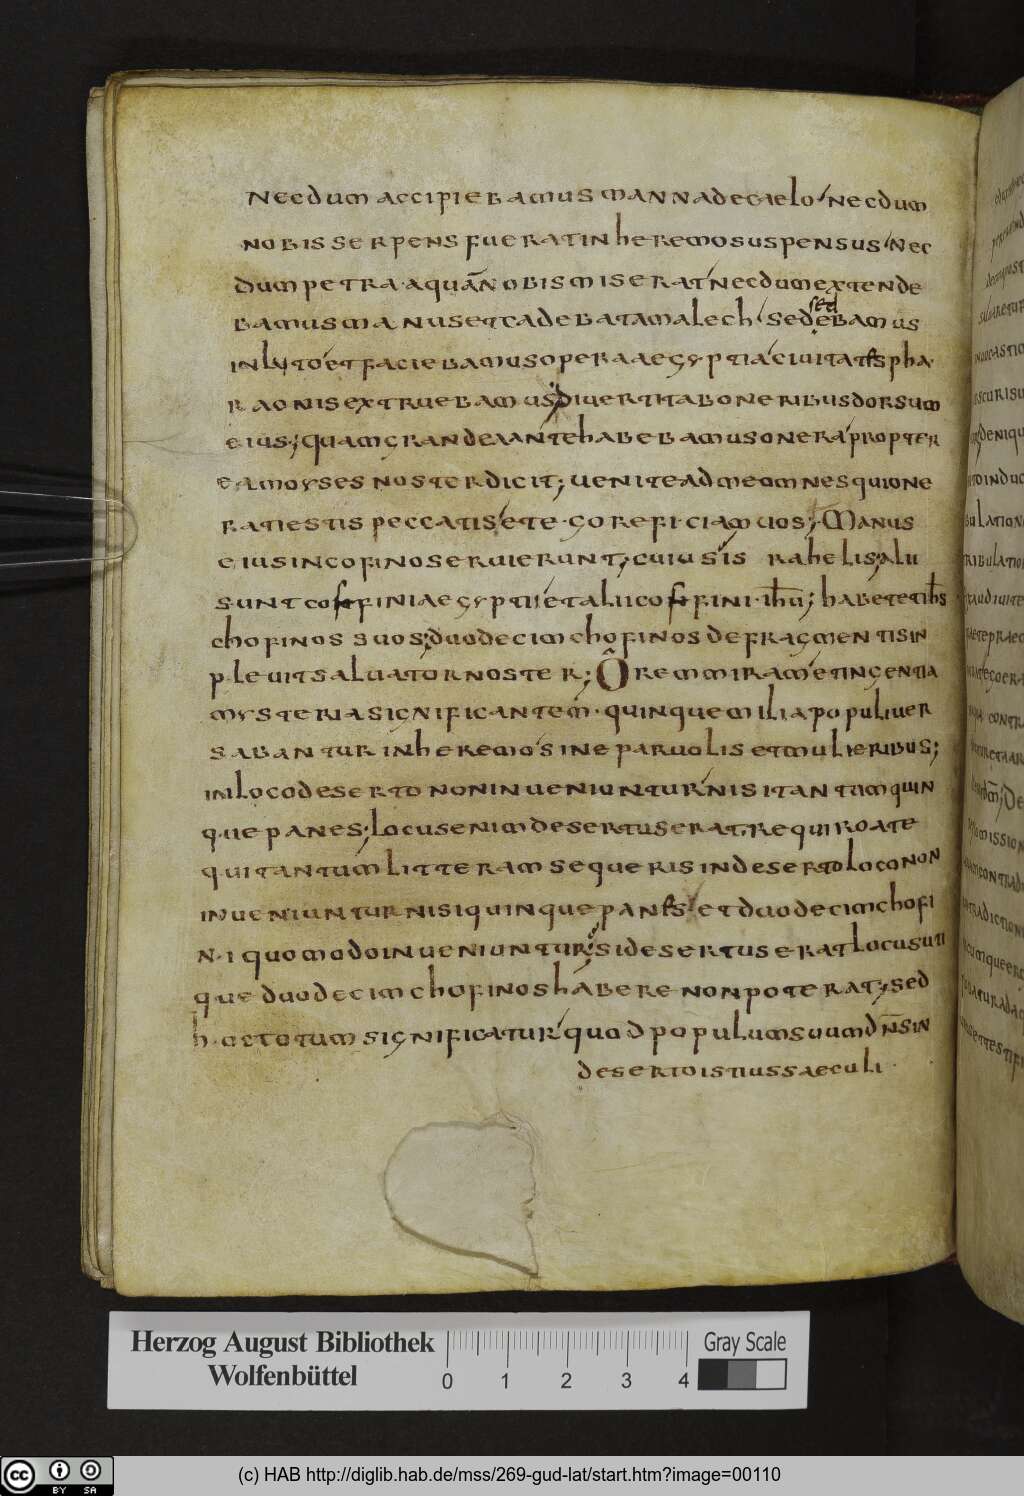 necdum accipiebamus manna de caelo necdum
nobis serpens fuerat in heremo suspensus nec
dum petra aquā nobis miserat necdum extende
bamus manus et cadebat amalech sed
sedebamus
in luto et faciebamus opera aegyptia civitates pha
raonis extruebamus divertit ab oneribus dorsum
eius; quam grande ante habebamus onera propter
ea moyses noster dicit; venite ad me omnes qui one
rati estis peccatis et ego reficiam vos; Manus
eius in cofino servierunt; cuius is rahelis; alii
sunt cofini aegyptii et alii cofini ihū; habet et ihs
chofinos suos; duodecim chofinos de fragmentis in
plevit salvator noster; O rem miram et ingentia
mysteria significantem quinque milia populi ver
sabantur in heremo sine parvolis et mulieribus;
in loco deserto non inveniuntur nisi tantum quin
que panes; locus enim desertus erat, requiro a te
qui tantum litteram sequeris in deserto loco non
inveniuntur nisi quinque panes et duodecim chofi
ni quomodo inveniuntur si desertus erat locus uti
que duodecim chofinos habere non poterat; sed
hoc totum significatur quod populum suum dns in
deserto istius saeculi
Herzog August Bibliothek
Wolfenbüttel
0 1 2 3 4
Gray Scale
cc BY SA
(c) HAB http://diglib.hab.de/mss/269-gud-lat/start.htm?image=00110